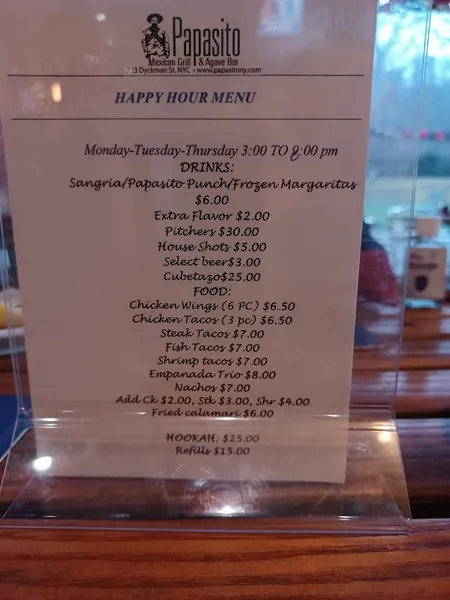 Papasito
Mexican Grill & Agave Bar
223 Dyckman St, NYC • www.papasitony.com
HAPPY HOUR MENU
Monday-Tuesday-Thursday 3:00 TO 8:00 pm
DRINKS:
Sangria/Papasito Punch/Frozen Margaritas
$6.00
Extra Flavor $2.00
Pitchers $30.00
House Shots $5.00
Select beer$3.00
Cubetazo$25.00
FOOD:
Chicken Wings (6 PC) $6.50
Chicken Tacos (3 pc) $6.50
Steak Tacos $7.00
Fish Tacos $7.00
Shrimp tacos $7.00
Empanada Trio $8.00
Nachos $7.00
Add Ck $2.00, Stk $3.00, Shr $4.00
Fried calamari $6.00
HOOKAH: $25.00
Refills $15.00